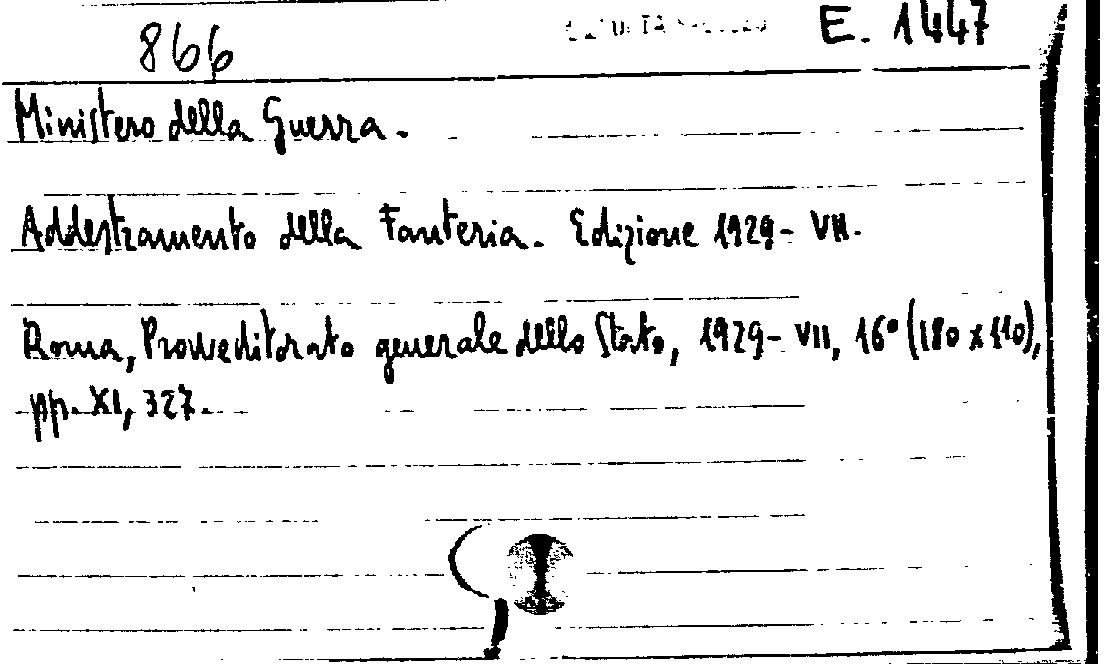 866 E. 1447
Ministero della Guerra.
Addestramento della Fanteria. Edizione 1929-VII.
Roma, Provveditorato generale dello Stato, 1929-VII, 16° (180 x 110),
pp. XI, 327.